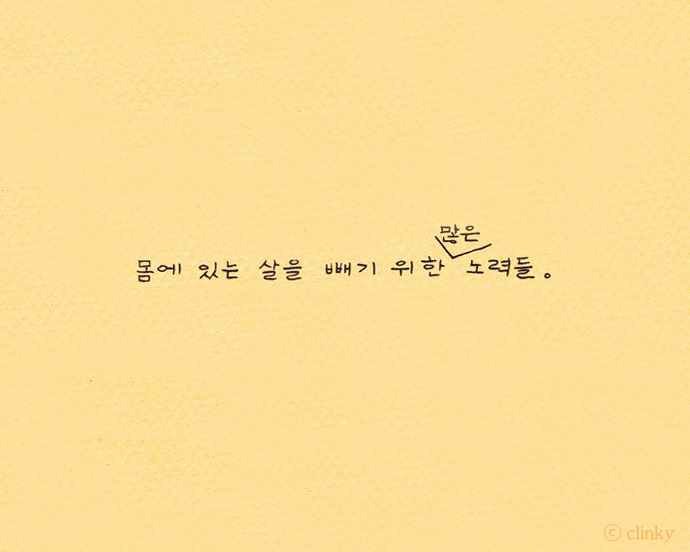 몸에 있는 살을 빼기 위한 많은 노력들。
ⓒ clinky